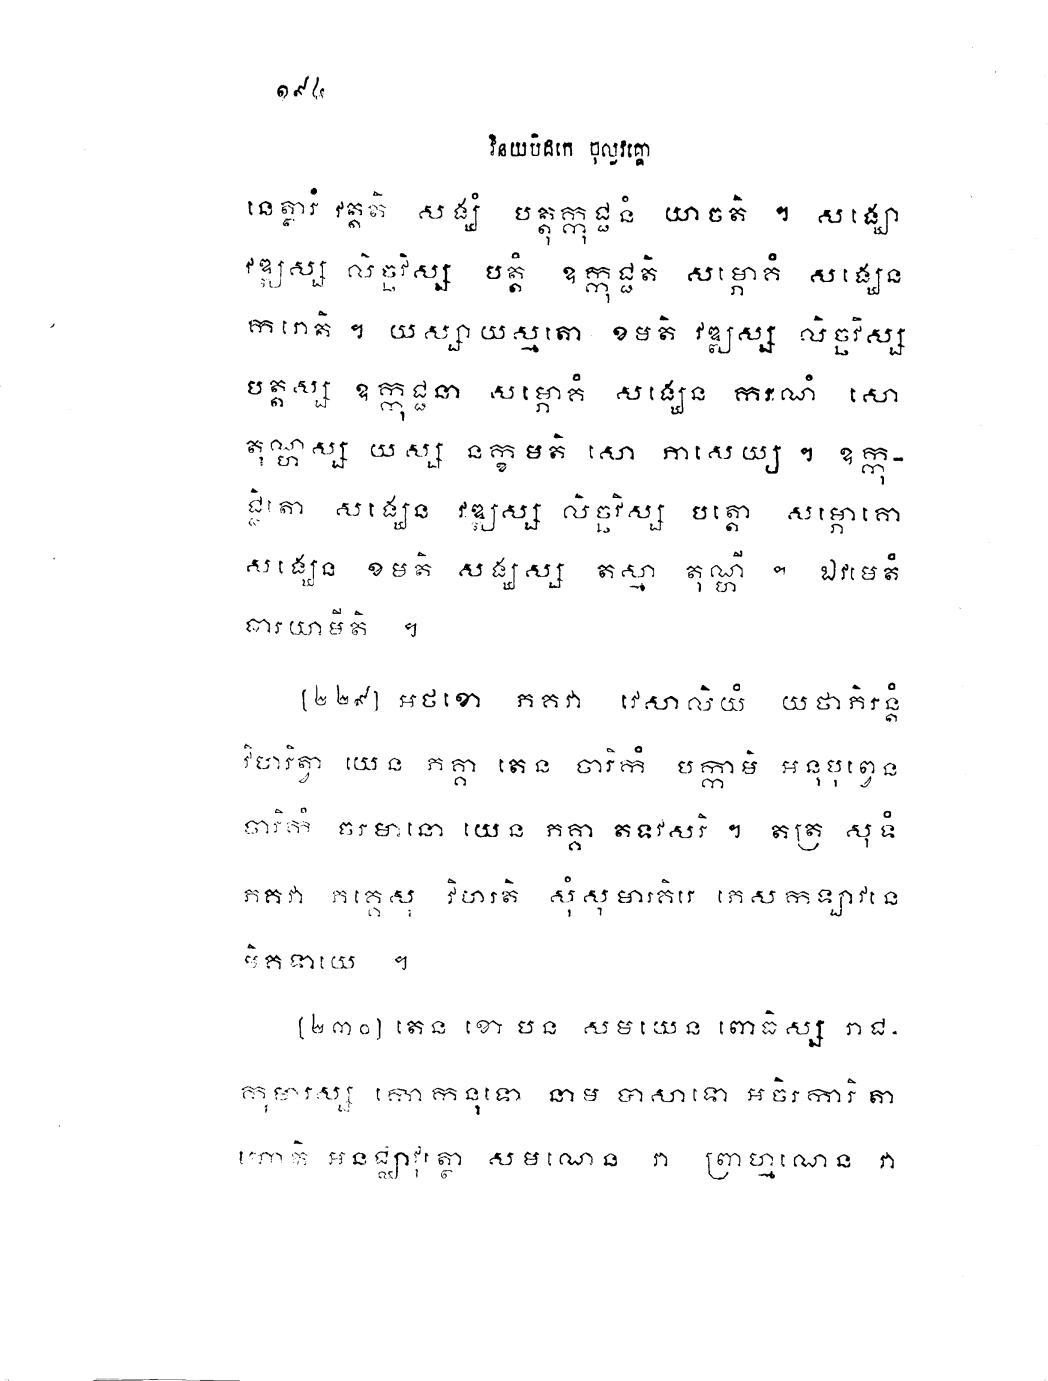 ១៩៤
វិនយបិដកេ ចុល្លវគ្គោ
នេត្ថារំ វត្តតិ សង្ឃំ បត្តុក្កុជ្ជនំ យាចតិ ។ សង្ឃោ
វឌ្ឍស្ស លិច្ឆវិស្ស បត្តំ ឧក្កុជ្ជតិ សម្ភោគំ សង្ឃេន
ករោតិ ។ យស្សាយស្មតោ ខមតិ វឌ្ឍស្ស លិច្ឆវិស្ស
បត្តស្ស ឧក្កុជ្ជនា សម្ភោគំ សង្ឃេន ករណំ សោ
តុណ្ហស្ស យស្ស នក្ខមតិ សោ ភាសេយ្យ ។ ឧក្កុ-
ជ្ជិតោ សង្ឃេន វឌ្ឍស្ស លិច្ឆវិស្ស បត្តោ សម្ភោគោ
សង្ឃេន ខមតិ សង្ឃស្ស តស្មា តុណ្ហី ។ ឯវមេតំ
ធារយាមីតិ ។
(២២៩) អថខោ ភគវា វេសាលិយំ យថាភិរន្តំ
វិហរិត្វា យេន ភគ្គា តេន ចារិកំ បក្កាមិ អនុបុព្វេន
ចារិកំ ចរមានោ យេន ភគ្គា តទវសរិ ។ តត្រ សុទំ
ភគវា ភគ្គេសុ វិហរតិ សុំសុមារគិរេ ភេសកឡាវនេ
មិគទាយេ ។
(២៣០) តេន ខោ បន សមយេន ពោធិស្ស រាជ-
កុមារស្ស កោកនុទោ នាម បាសាទោ អចិរការិតា
ហោតិ អនជ្ឈាវុត្ថោ សមណេន វា ព្រាហ្មណេន វា